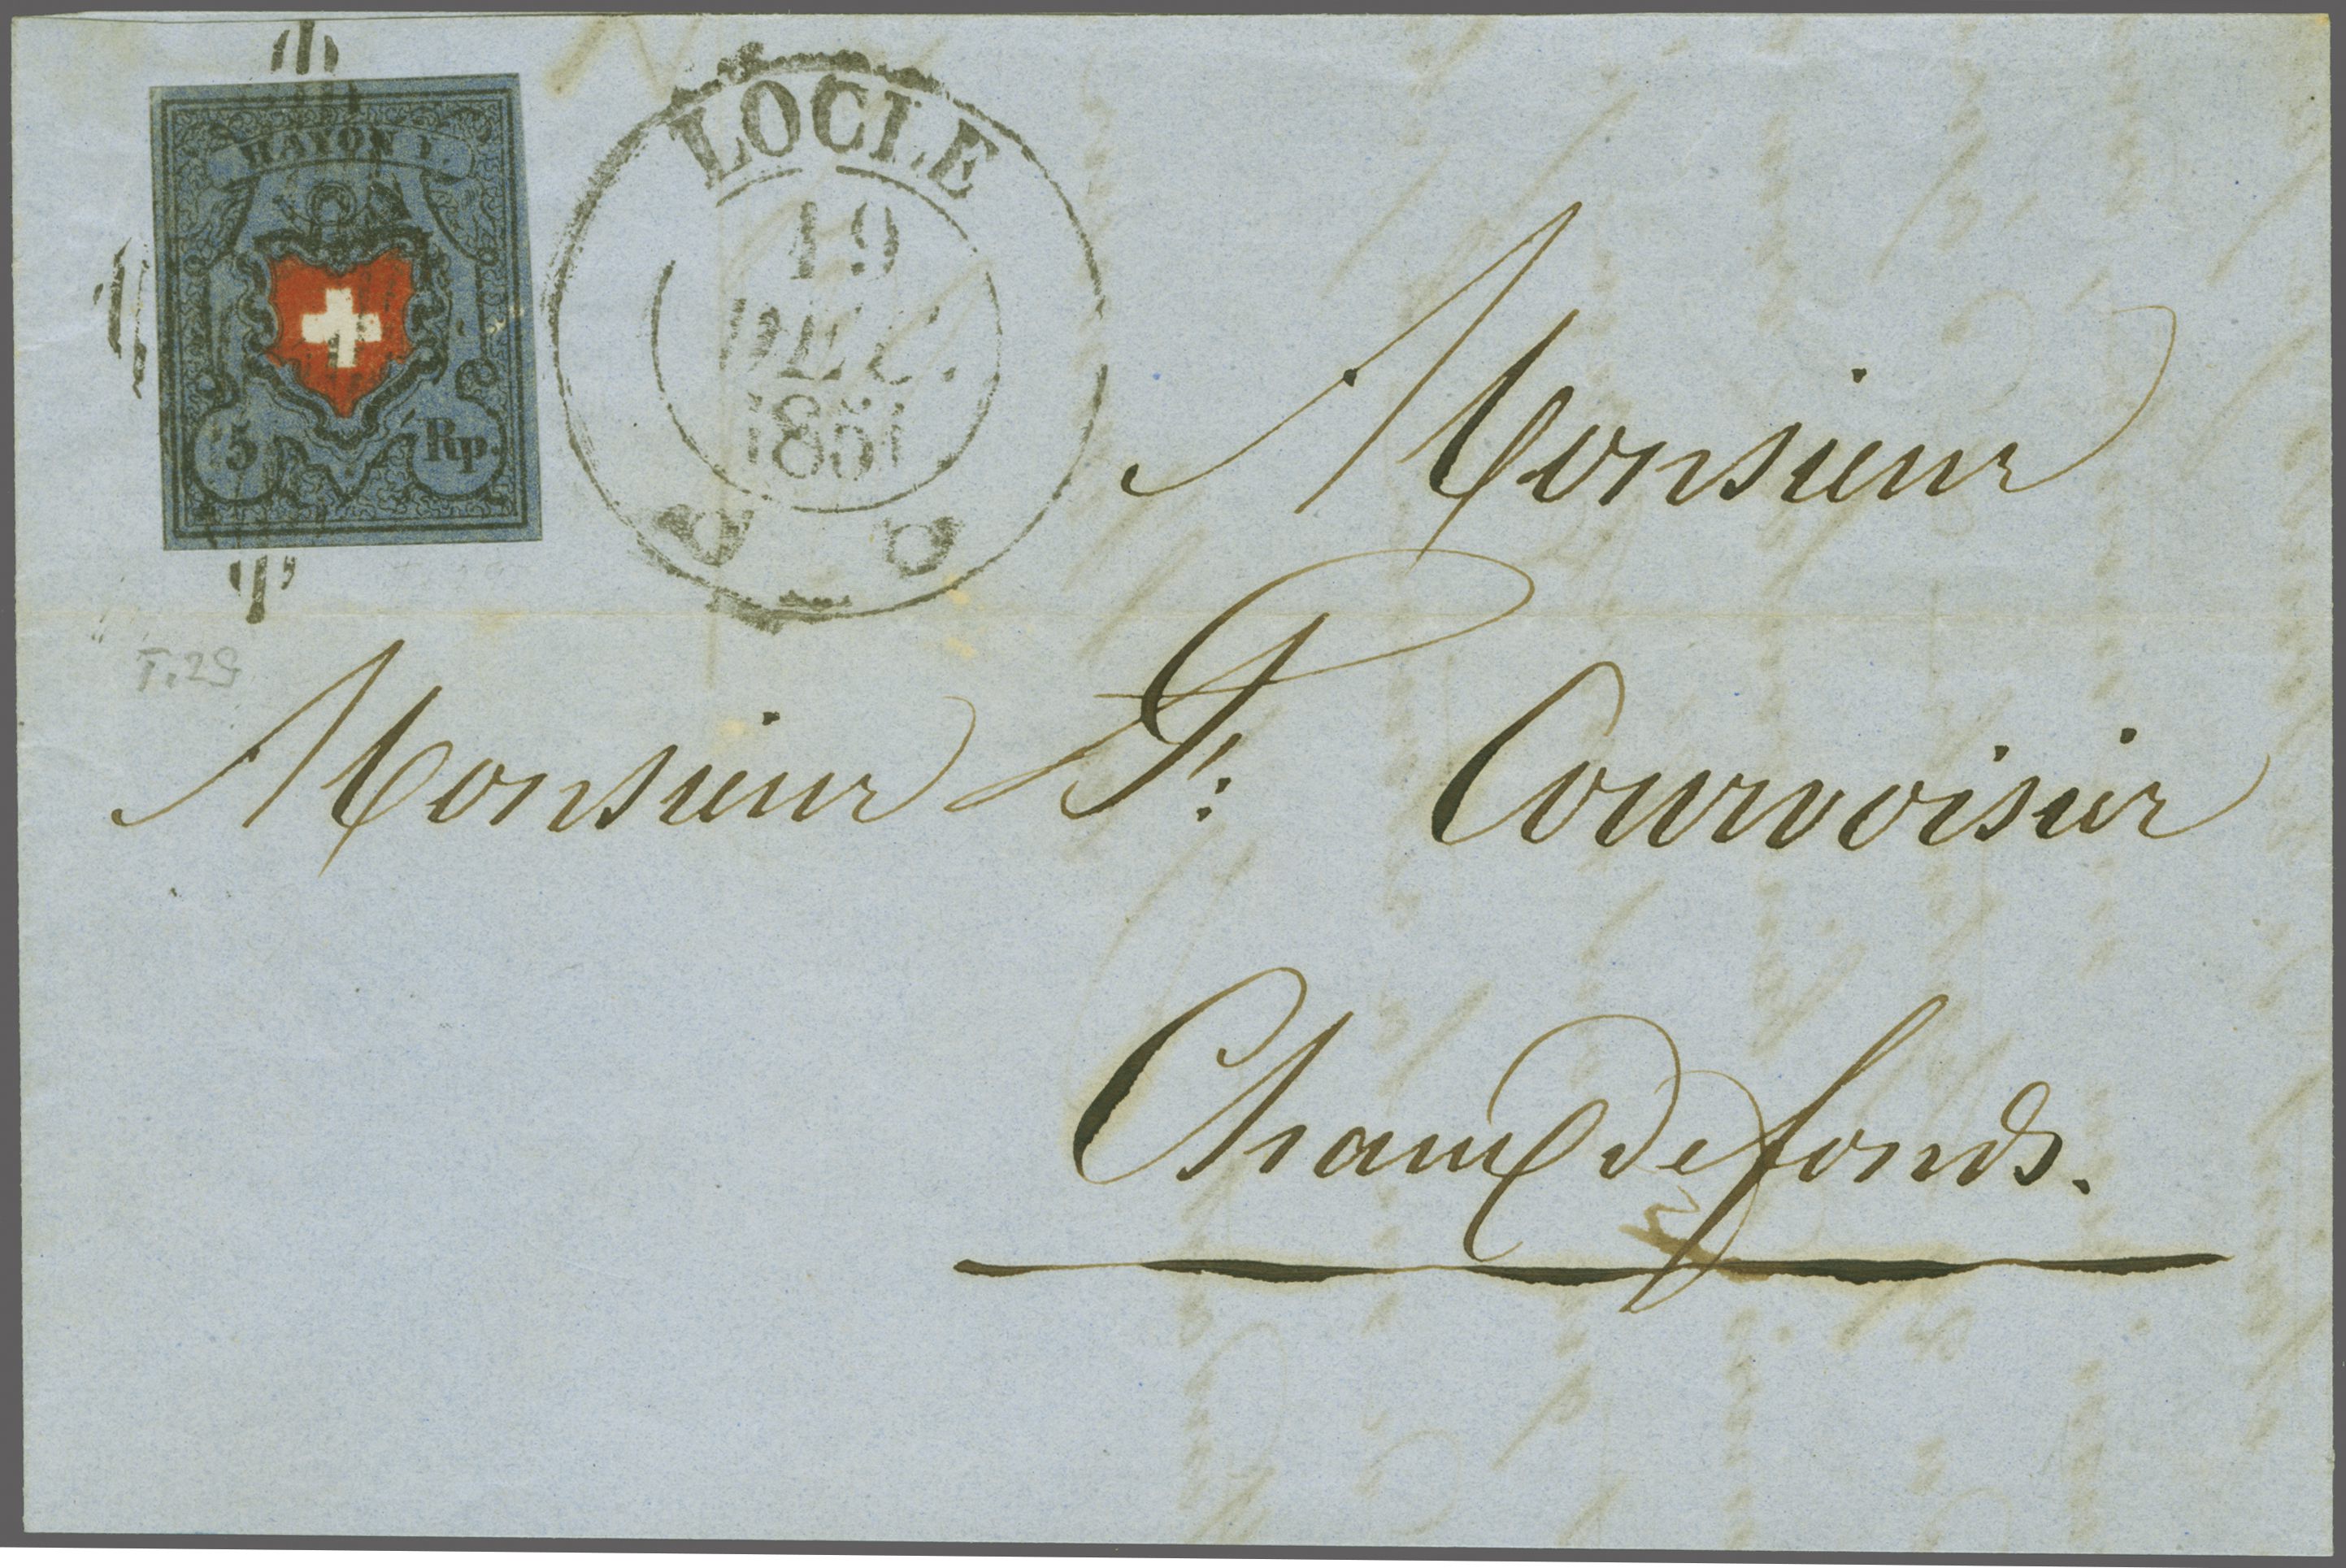 RAYON I.
5 Rp.
LOCLE
19
DEC.
1851
T.29
Monsieur
Monsieur Courvoisier
Chaux de fonds.